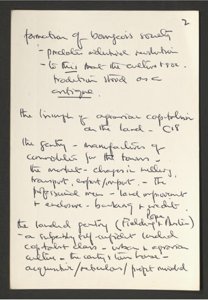 2
formation of bourgeois society
- predates industrial revolution
- to this that the culture + soc.
tradition stood as a
critique.
the triumph of agrarian capitalism
on the land - C18
The gentry - manufacturers of
commodities for the towns -
the market - changes in milling,
transport, export/import. - the
professional men - land improvement
+ enclosure - banking + credit
the landed gentry (Fielding + Austen)
- a supremely self-confident landed
capitalist class - urban + agrarian
culture - the country & town house -
acquisitive / / profit minded